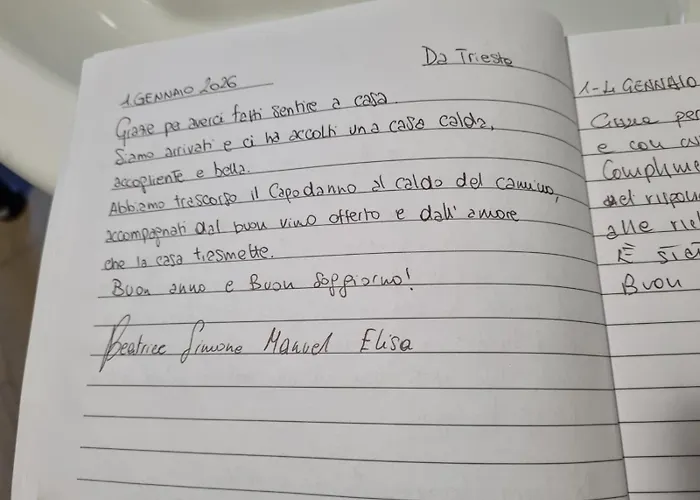 Da Trieste
1 GENNAIO 2026
Grazie per averci fatti sentire a casa.
Siamo arrivati e ci ha accolti una casa calda,
accogliente e bella.
Abbiamo trascorso il Capodanno al caldo del camino,
accompagnati dal buon vino offerto e dall'amore
che la casa trasmette.
Buon anno e Buon Soggiorno!
Beatrice Simone Manuel Elisa
1-4 GENNAIO
e con
alle
È
Buon